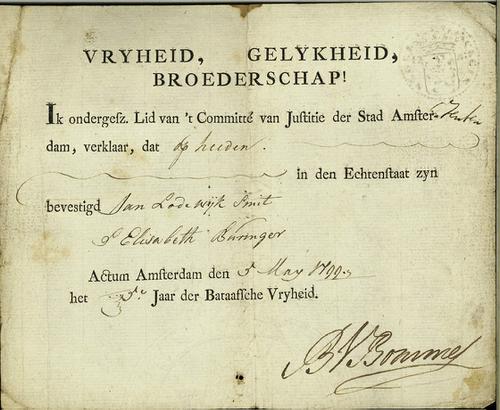 VRYHEID, GELYKHEID,
BROEDERSCHAP!
Ik ondergesz. Lid van 't Committé van Justitie der Stad Amster-
dam, verklaar, dat op heeden.
in den Echtenstaat zyn
bevestigd Jan Lodewijk Smit
Elisabeth Büringer
Actum Amsterdam den 5 May 1799.
het 5e. Jaar der Bataafsche Vryheid.
BVBommel